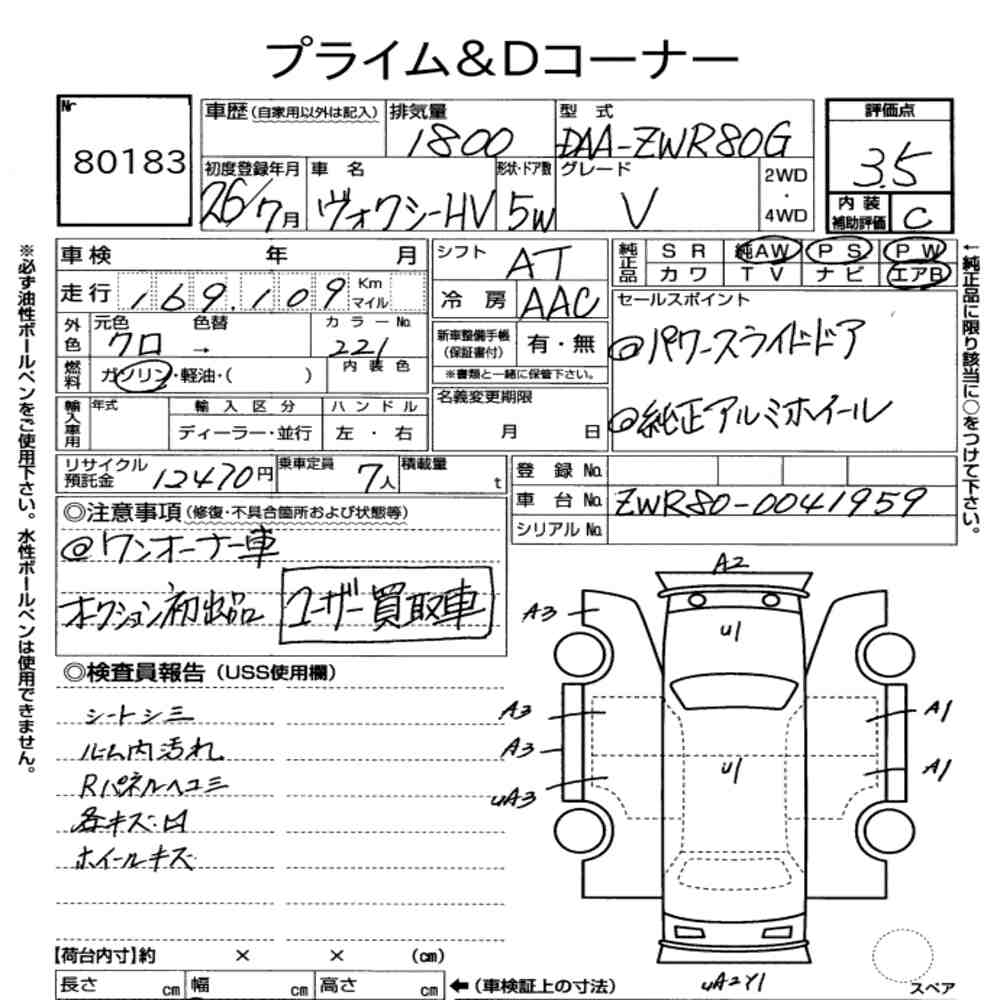 プライム＆Dコーナー
Nr 80183
車歴(自家用以外は記入) 排気量 1800 型式 DAA-ZWR80G
初度登録年月 26/7月 車名 ヴォクシーHV 形状・ドア数 5W グレード V 2WD・4WD
評価点 3.5
内装補助評価 C
車検 年 月
走行 169.109 Km マイル
外色 元色 クロ 色替 → カラーNo. 221
燃料 ガソリン・軽油・( ) 内装色
輸入車用 年式 輸入区分 ディーラー・並行 ハンドル 左・右
シフト AT
冷房 AAC
新車整備手帳(保証書付) 有・無
※書類と一緒に保管下さい。
名義変更期限 月 日
純正品 SR 純AW PS PW
カワ TV ナビ エアB
セールスポイント
◎パワースライドドア
◎純正アルミホイール
リサイクル預託金 12470円 乗車定員 7人 積載量 t
登録No.
車台No. ZWR80-0041959
シリアルNo.
◎注意事項(修復・不具合箇所および状態等)
◎ワンオーナー車
オークション初出品 ユーザー買取車
◎検査員報告(USS使用欄)
シートシミ
ルーム内汚れ
Rパネルヘコミ
各キズ・凹
ホイールキズ
A2
A3
U1
A3 A1
A3 U1 A1
UA3
UA2Y1
スペア
【荷台内寸】約 × × (cm)
長さ cm 幅 cm 高さ cm ←(車検証上の寸法)
※必ず油性ボールペンをご使用下さい。水性ボールペンは使用できません。
↑純正品に限り該当に○をつけて下さい。